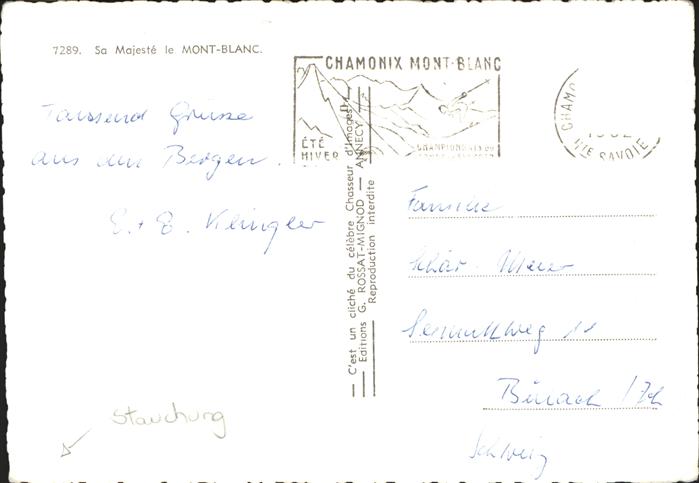 7289. Sa Majesté le MONT-BLANC.
CHAMONIX MONT-BLANC
ÉTÉ
HIVER
CHAMO
HTE SAVOIE
Tausend Grüsse
aus den Bergen.
E. + E. Klingler
C'est un cliché du célèbre Chasseur d'Images
Editions G. ROSSAT-MIGNOD — ANNECY
Reproduction interdite
Familie
Schär - Meier
11
Bülach / Zch
Schweiz
Stauchung